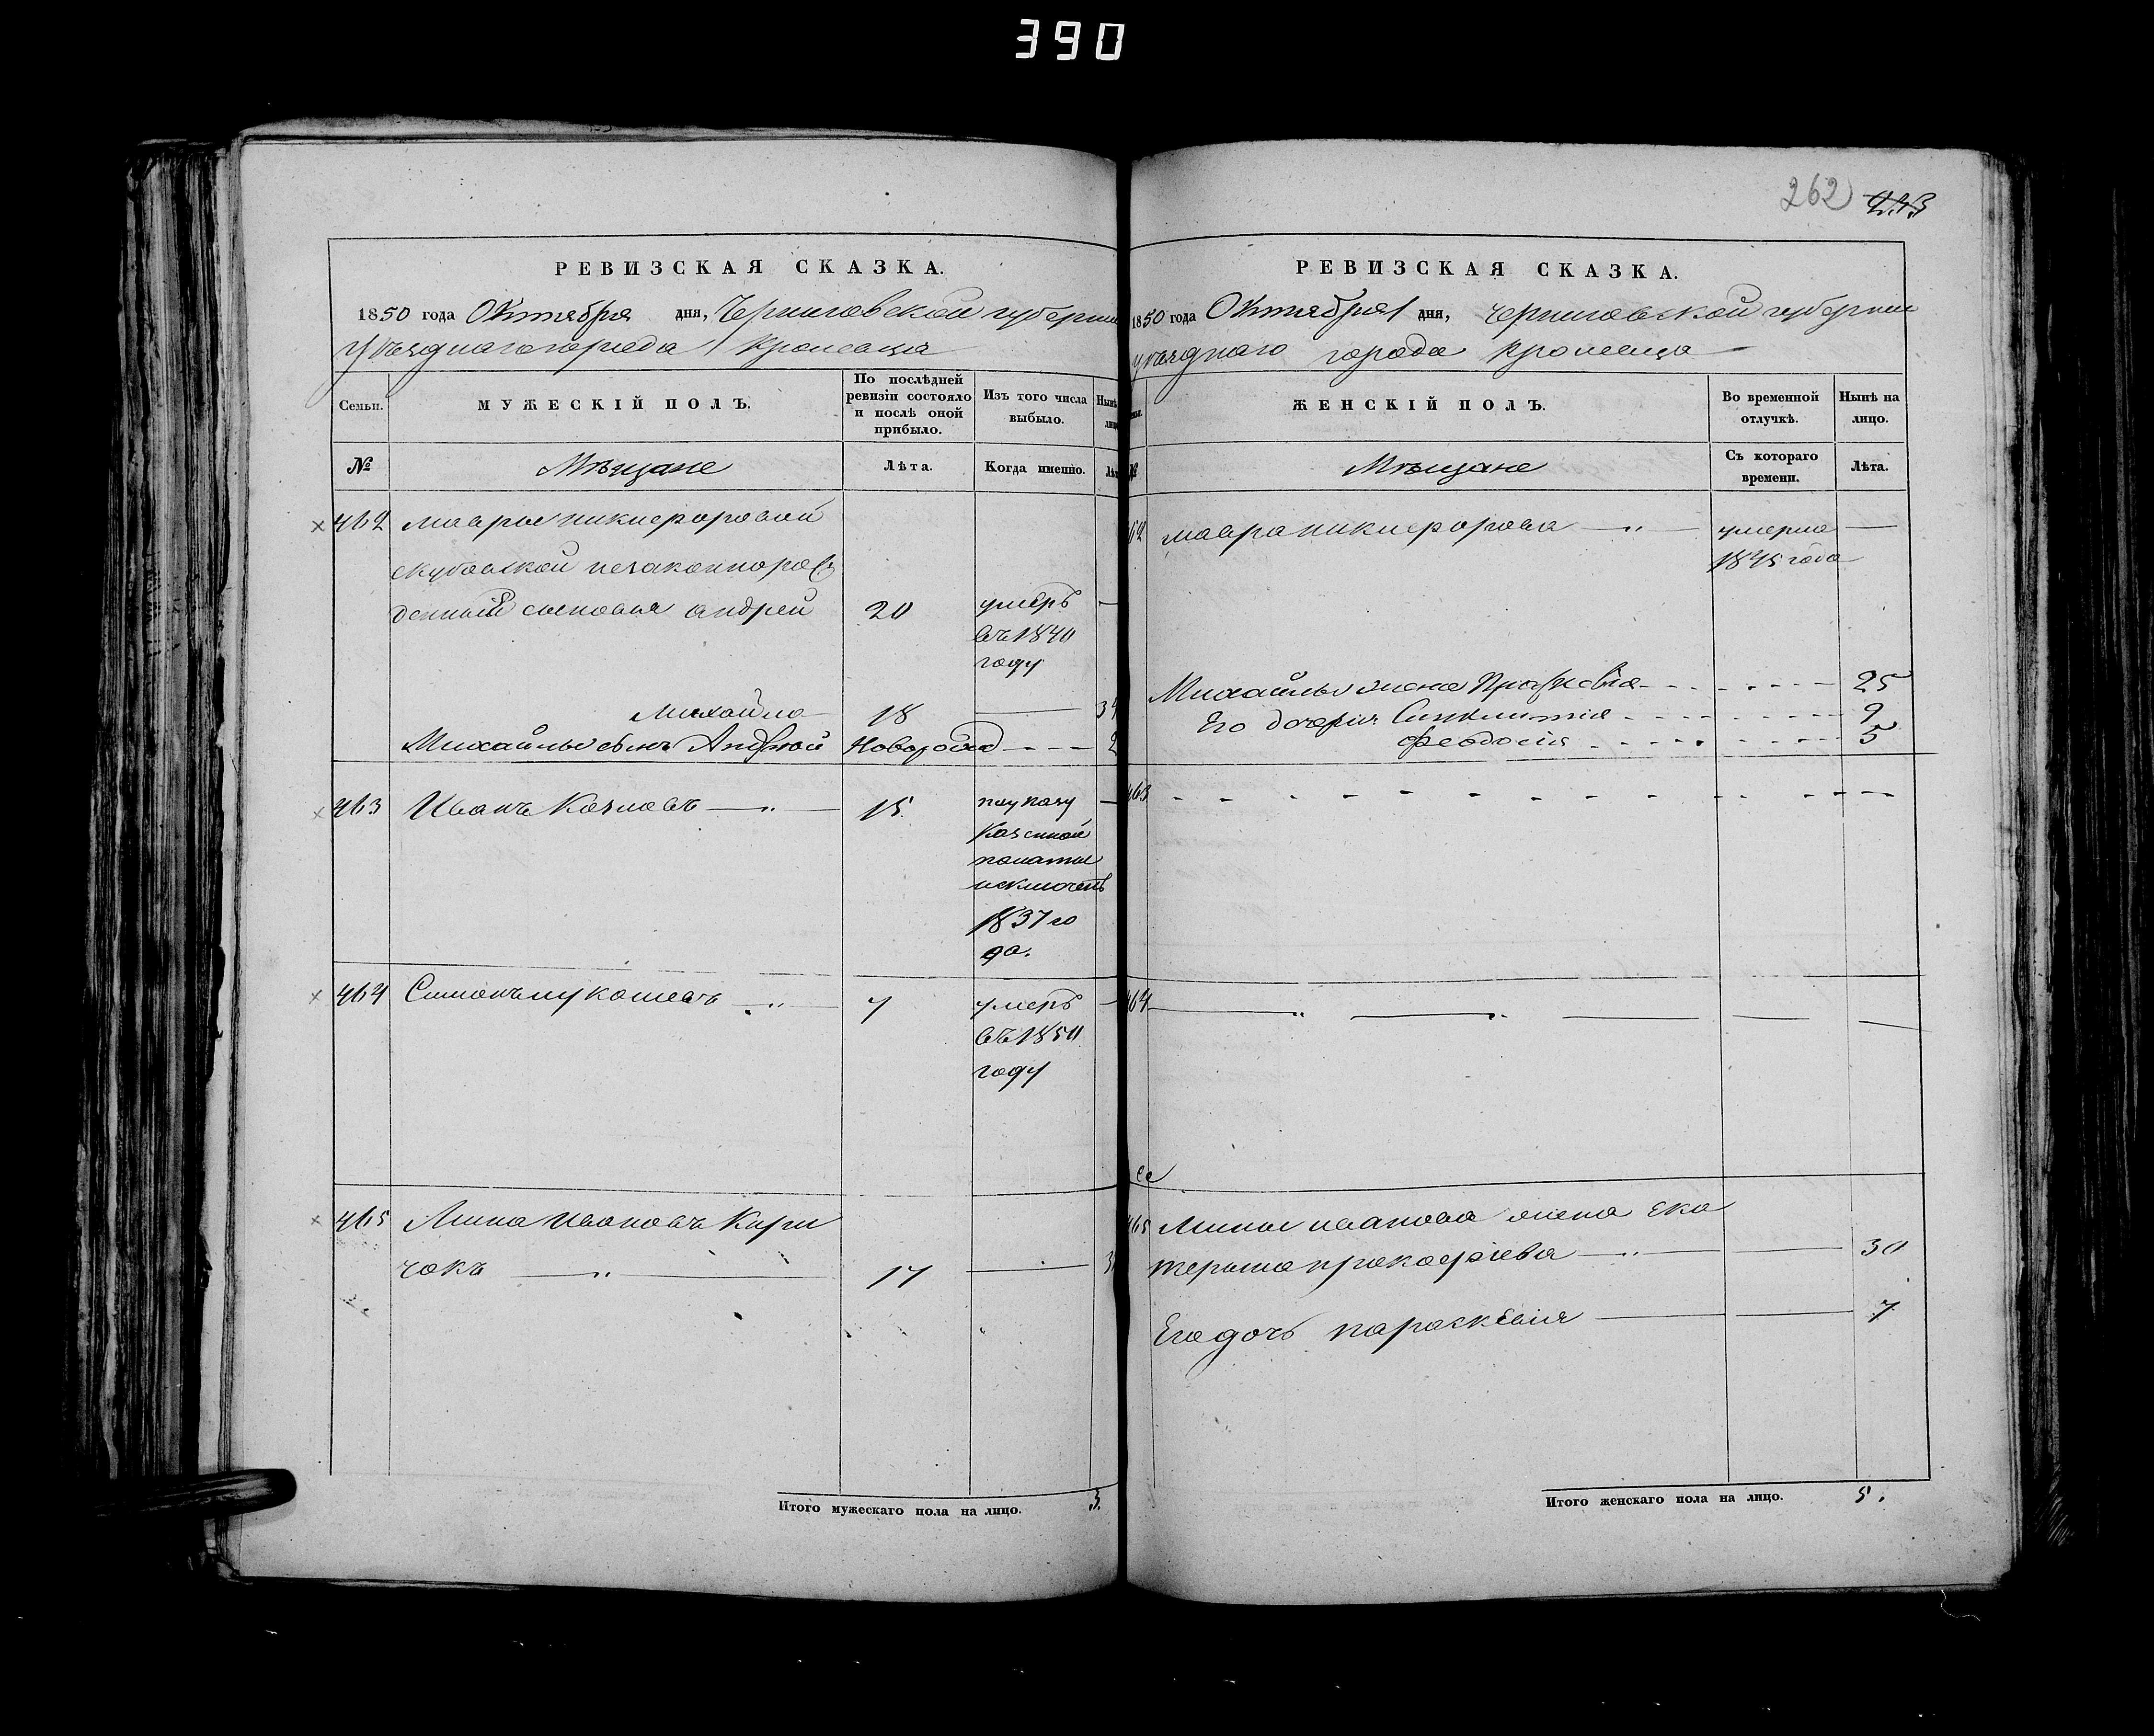 390
262 433
РЕВИЗСКАЯ СКАЗКА.
1850 года Октября дня, Черниговской губернии
уѣзднаго города Кролевца
Семьи.
МУЖЕСКІЙ ПОЛЪ.
По послѣдней ревизіи состояло и послѣ оной прибыло.
Изъ того числа выбыло.
Нынѣ
№
Мѣщане
Лѣта.
Когда именно.
462 Мавры никифоровой
незаконнорож
денный сыновья андрей 20 умеръ
въ 1840
году
Михайло 18 34
Михайлы сынъ Андрей Новорожд 2
463 Иванъ Козловъ 15 по указу
Казенной
палаты
исключенъ
1837 го
да.
464 Симонъ 7 умеръ
въ 1850
году
465 Мина Ивановъ Кири
чокъ 17
Итого мужескаго пола на лицо. 3.
РЕВИЗСКАЯ СКАЗКА.
1850 года Октября дня, Черниговской губернии
уѣзднаго города Кролевца
ЖЕНСКІЙ ПОЛЪ.
Во временной отлучкѣ.
Нынѣ на лицо.
№
Мѣщане
Съ котораго времени.
Лѣта.
62 мавра никифорова умерла
1845 года
Михайлы жена Прасковія 25
Его дочери Синклитія 9
Феодосія 5
463
464
465 Мины иванова жена Ека
терина прокофіева 30
Его дочь параскевія 7
Итого женскаго пола на лицо. 5.